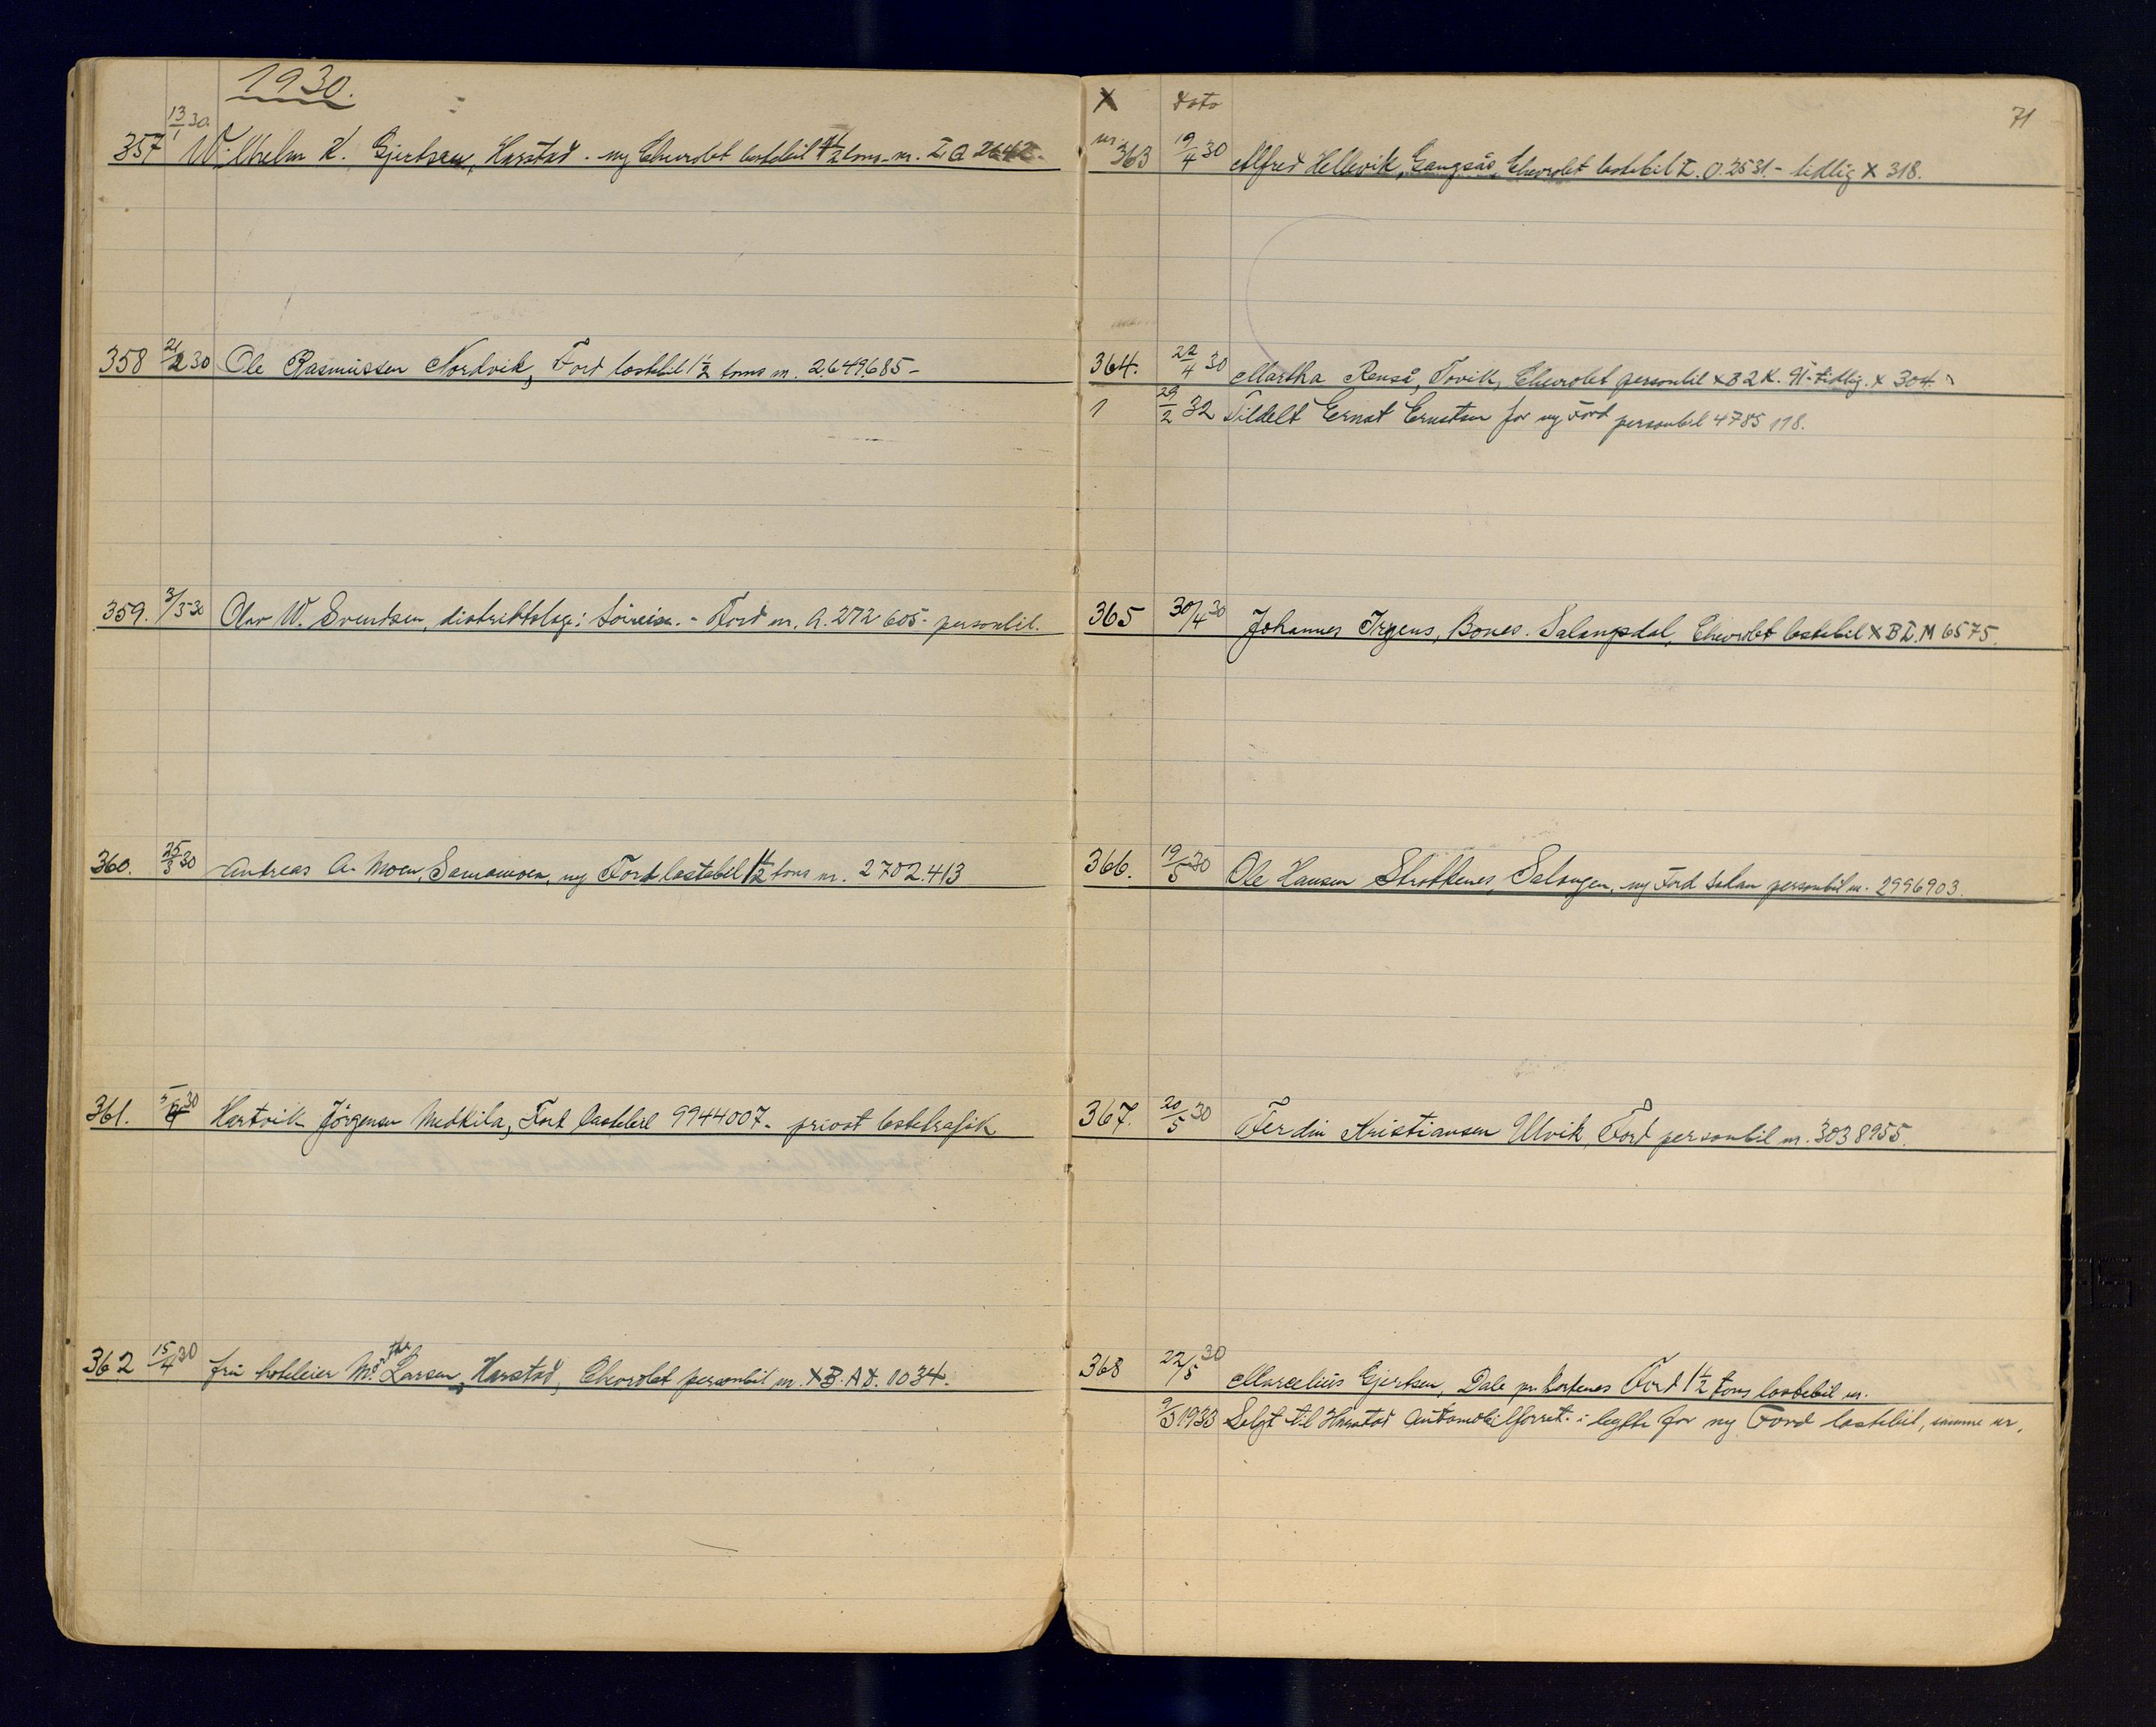 1930.
357 13/1 30. Wilhelm K. Gjertsen, Harstad. ny Chevrolet lastebil 1 1/2 tons nr. L.Q 2642.
358 21/2 30 Ole Rasmussen Nordvik, Ford lastebil 1 1/2 tons nr. 2.649.685 -
359. 3/3 30 Olav W. Svendsen, distriktslege i Sörreisa. - Ford nr. A. 272 605 - personbil.
360. 25/3 30 Andreas A. Moen, Samamoen, ny Ford lastebil 1 1/2 tons nr. 2702.413
361. 5/4 30 Hartvik Jörgensen Medkila, Ford lastebil 9944007 - privat lastetrafik
362 15/4 30 fru hoteleier Larsen, Harstad, Chevrolet personbil nr. XB. AD. 0034.
X Dato 71
nr 363 19/4 30 Alfred Hellevik, Gangsås, Chevrolet lastebil L. O. 2531. - tidlig X 318.
364. 22/4 30 Martha Renså, Tovik, Chevrolet personbil XB 2K. 91 - tidlig. X 304.
1 29/2 32 Tildelt Ernst Ernstsen for ny Ford personbil 4785 118.
365 30/4 30 Johannes Irgens, Bones. Salangsdal, Chevrolet lastebil XB L.M 6575.
366. 19/5 30 Ole Hansen Strokkenes, Salangen, ny Ford sedan personbil nr. 2996903.
367. 20/5 30 Ferdin Kristiansen Ulvik, Ford personbil nr. 3038955.
368 22/5 30 Marcelius Gjertsen, Dale pr. Sortenes Ford 1 1/2 tons lastebil nr.
9/3 1933 Solgt til Harstad Automobilforret. i bytte for ny Ford lastebil, samme nr.